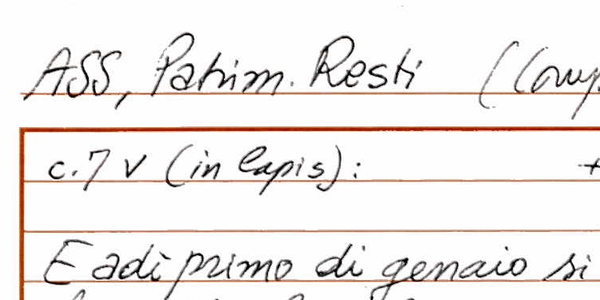 ASS, Patrim. Resti (Comp.
c. 7 v (in lapis): +
E adì primo di genaio si